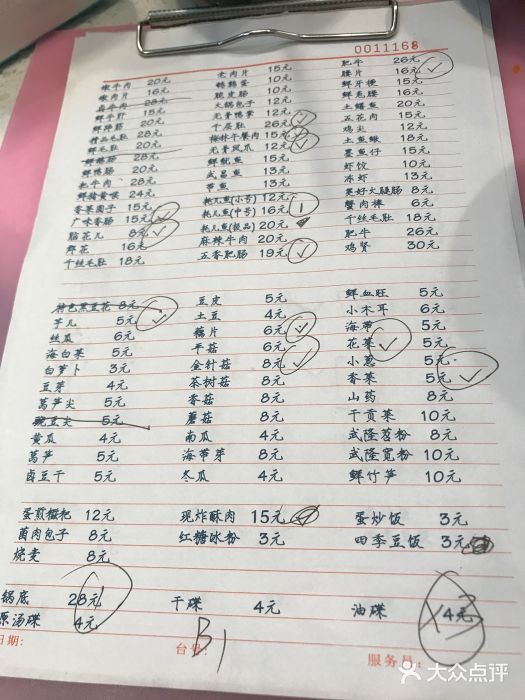 0011168
嫩牛肉 20元 老肉片 15元 肥牛 26元
嫩肉片 16元 鹌鹑蛋 10元 腰片 16元
28元 脆皮肠 10元 鲜牙梗 15元
鲜牛肝 15元 火锅包子 12元 鲜鱼腰 16元
鲜郡肝 20元 无骨鸭掌 12元 土鳝鱼 20元
精品毛肚 28元 千层肚 26元 五花肉 15元
鲜毛肚 20元 梅林午餐肉 15元 鸡尖 12元
鲜鹅肠 28元 无骨凤爪 12元 土鱼鳅 18元
鲜鸭肠 20元 鲜鱿鱼 15元 墨鱼仔 15元
把牛肉 28元 武昌鱼 15元 虾饺 10元
鲜猪黄喉 24元 带鱼 13元 冻虾 13元
香菜圆子 15元 耗儿鱼(小号) 12元 美好火腿肠 8元
广味香肠 15元 耗儿鱼(中号) 16元 1 蟹肉棒 6元
脑花儿 8元 耗儿鱼(极品) 20元 千丝毛肚 18元
郡花 16元 麻辣牛肉 20元 肥牛 26元
千丝毛肚 18元 五香肥肠 19元 鸡肾 30元
特色黑豆花 8元 豆皮 5元 鲜血旺 5元
芋儿 5元 土豆 4元 小木耳 6元
丝瓜 6元 藕片 6元 海带 5元
海白菜 5元 平菇 6元 花菜 5元
白萝卜 3元 金针菇 8元 小葱 5元
豆芽 4元 茶树菇 8元 香菜 5元
莴笋尖 5元 香菇 8元 山药 8元
豌豆尖 5元 蘑菇 8元 干贡菜 10元
黄瓜 4元 南瓜 4元 武隆苕粉 8元
莴笋 5元 海带芽 8元 武隆宽粉 10元
卤豆干 5元 冬瓜 4元 鲜竹笋 10元
蛋煎糍粑 12元 现炸酥肉 15元 蛋炒饭 3元
卤肉包子 8元 红糖冰粉 3元 四季豆饭 3元
烧麦 8元
锅底 28元 干碟 4元 油碟 4元
原汤碟 4元
日期: 台号: B1 服务员:
大众点评